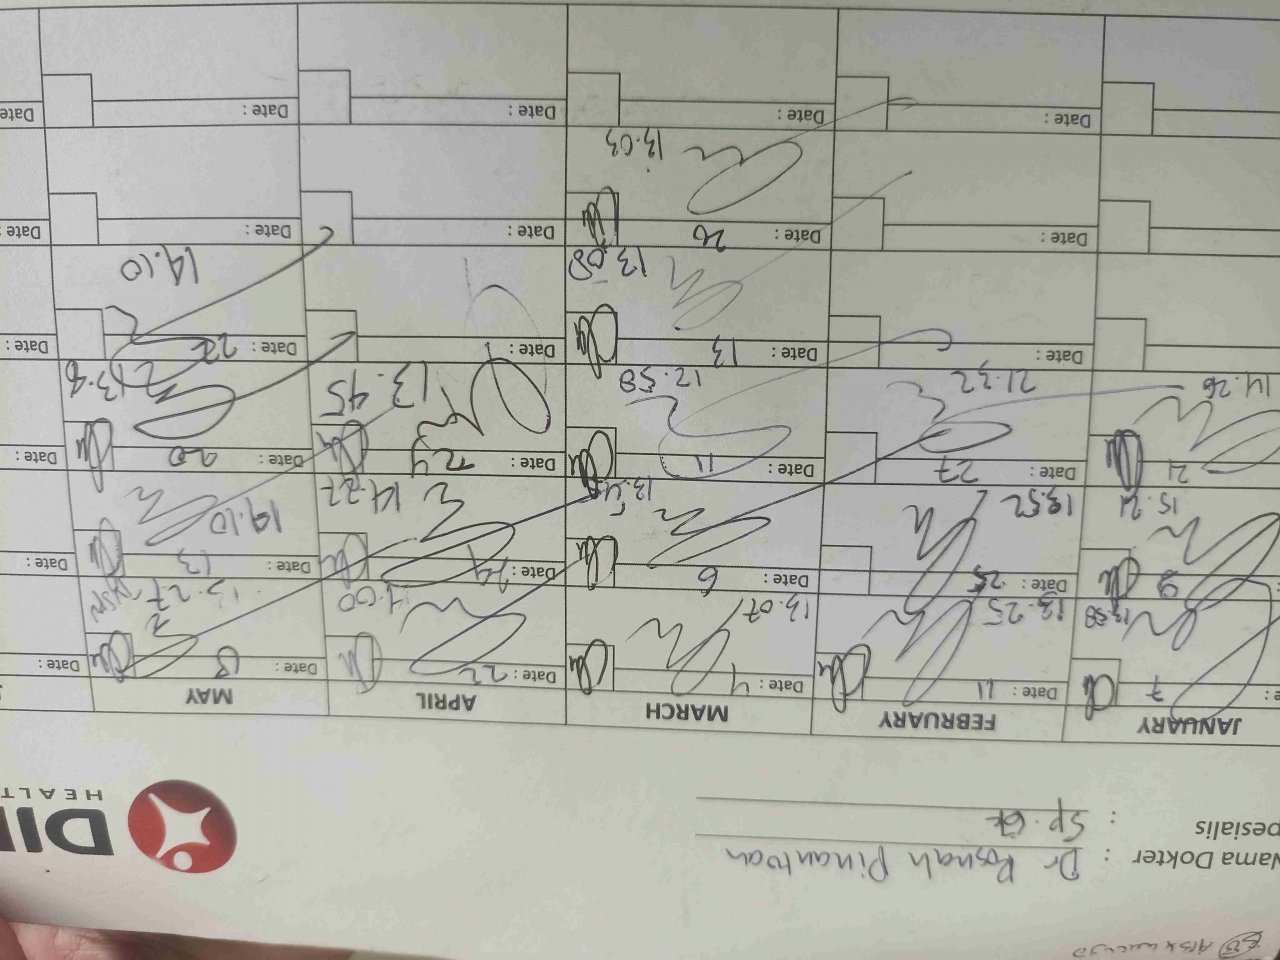 Nama Dokter : Dr Rosnah Pinantoan
pesialis : Sp. GK
DI
HEALT
JANUARY FEBRUARY MARCH APRIL MAY
7 Date : 11 Date : 4 Date : 22 Date : 8 Date :
13.58 13.25 13.07 14.00
9 Date : 25 Date : 6 Date : 29 Date : 13 Date :
15.21 13.52 14.22 14.10
21 Date : 27 Date : 11 Date : 24 Date : 20 Date :
14.26 21.32 12.58 13.45
Date : Date : 13 Date : Date : 22 Date :
13.08 14.10
Date : Date : 26 Date : Date : Date :
13.03
Date : Date : Date : Date : Date